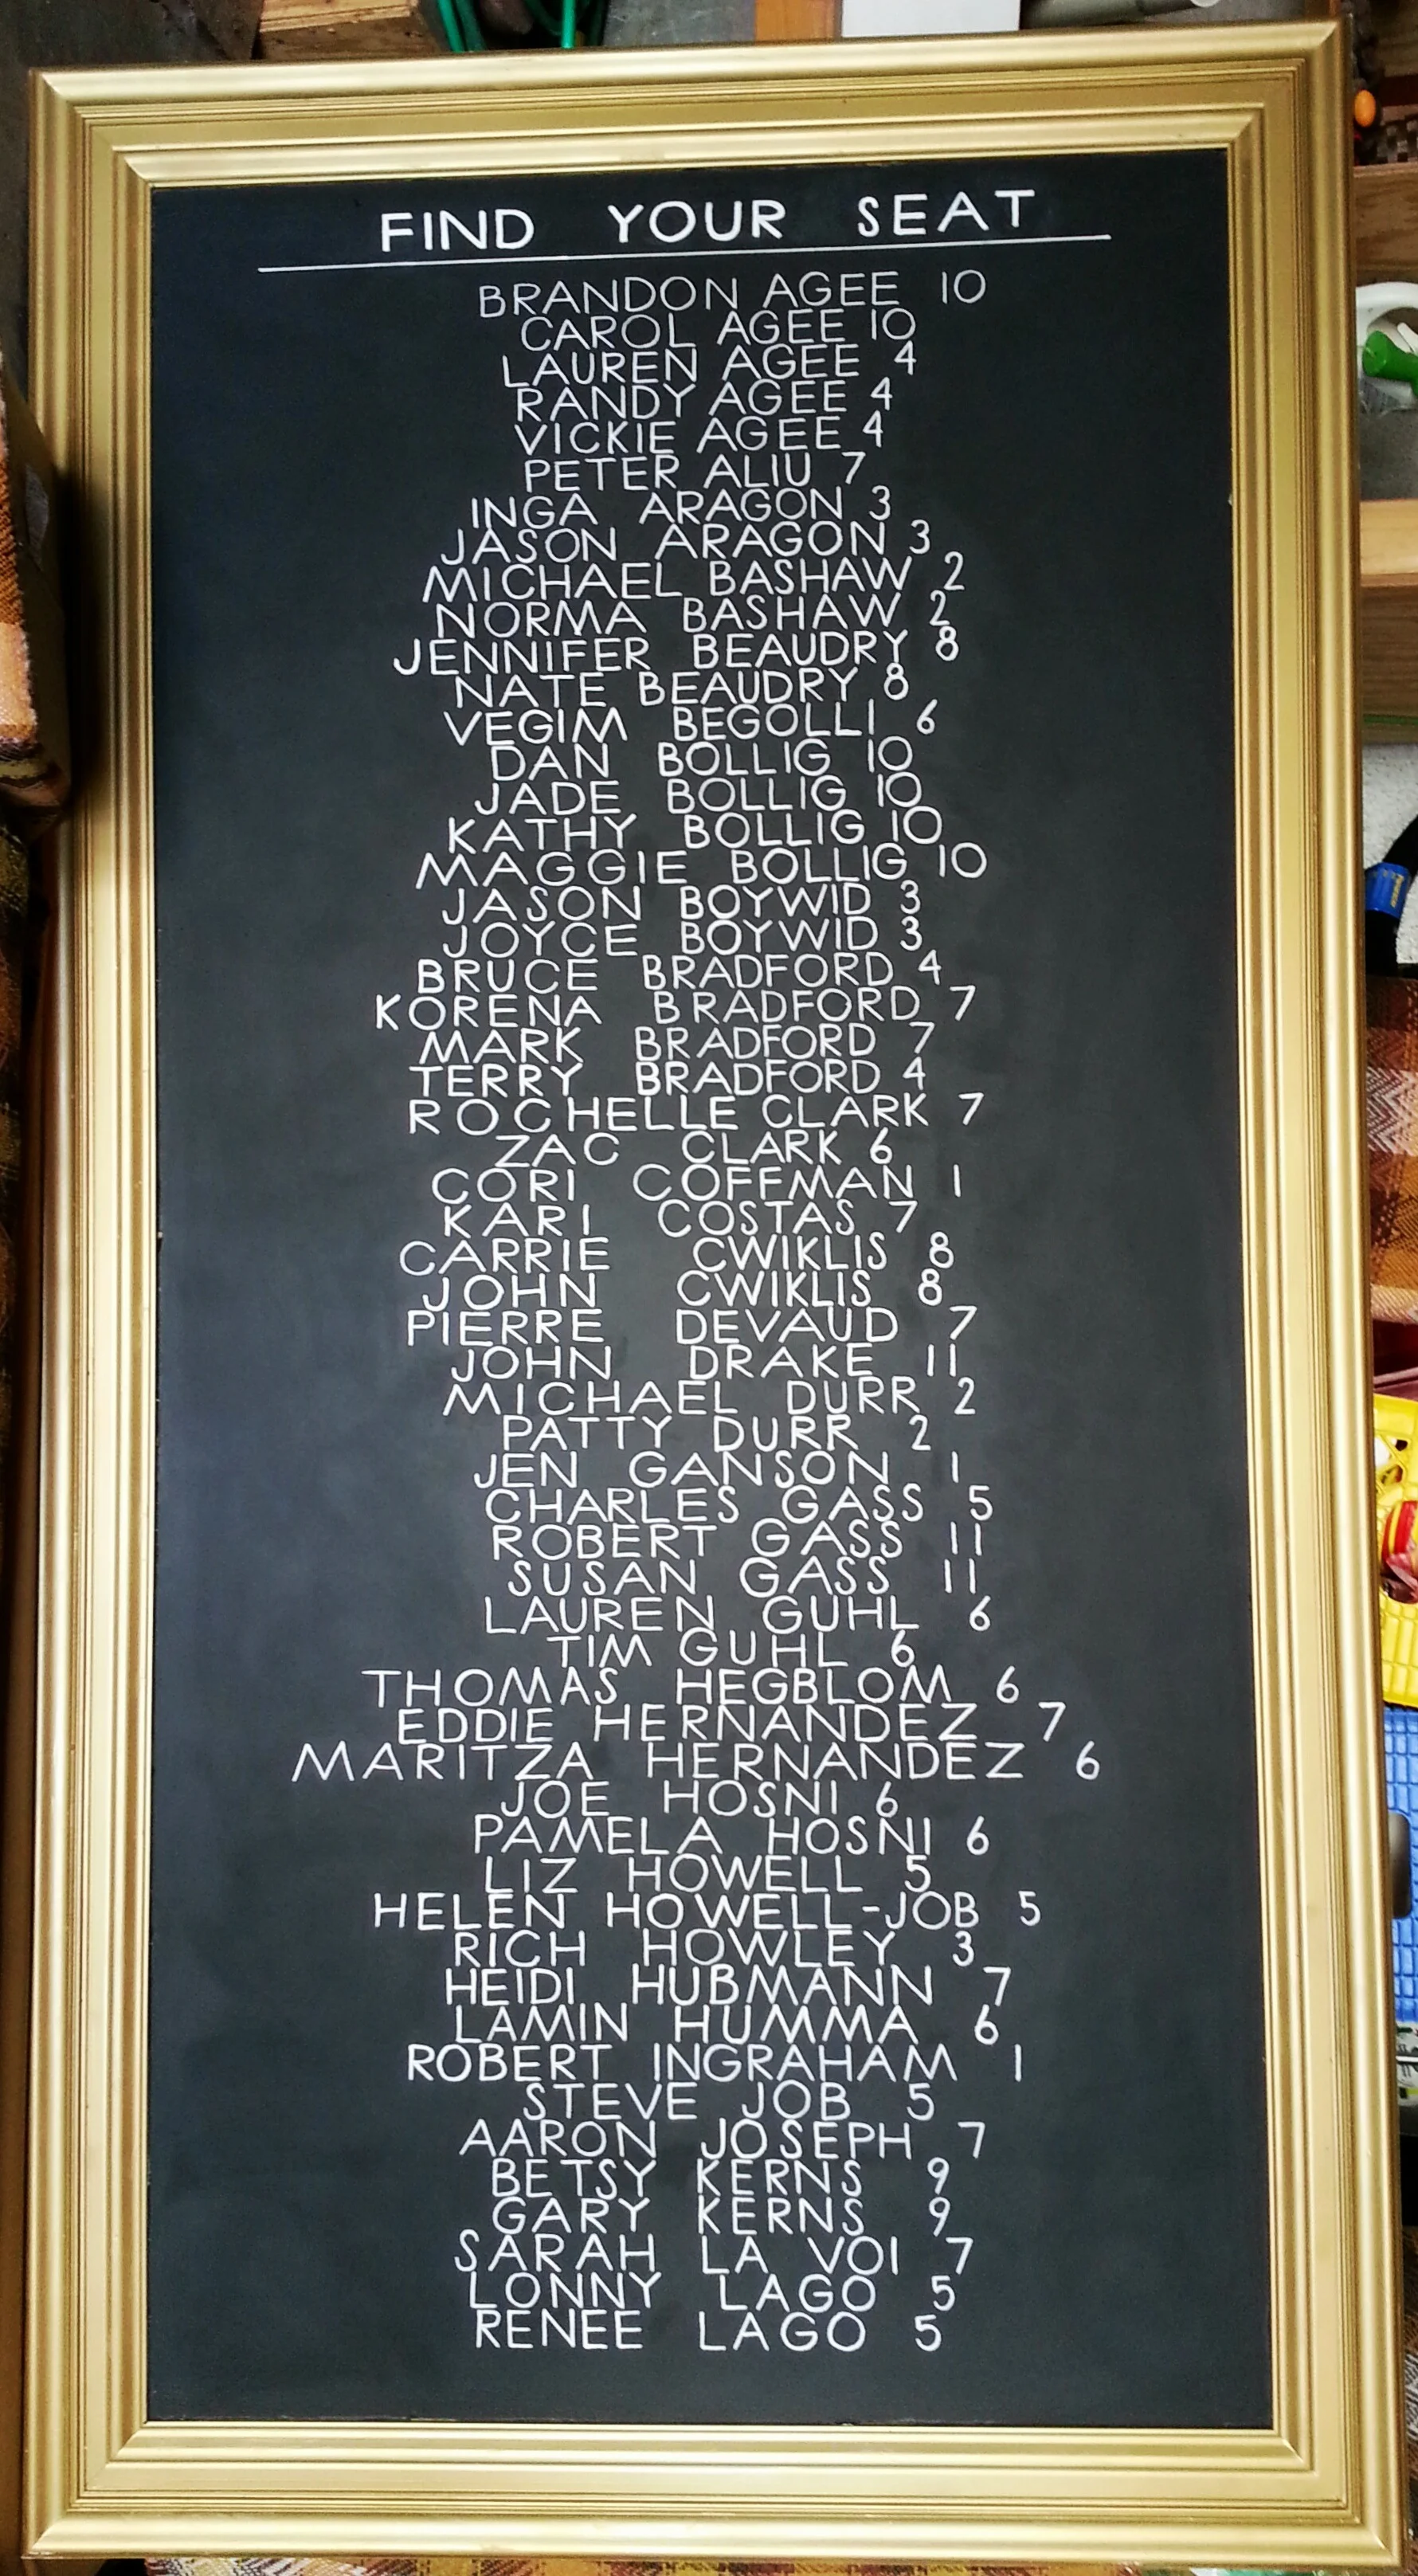 FIND YOUR SEAT
BRANDON AGEE 10
CAROL AGEE 10
LAUREN AGEE 4
RANDY AGEE 4
VICKIE AGEE 4
PETER ALIU 7
INGA ARAGON 3
JASON ARAGON 3
MICHAEL BASHAW 2
NORMA BASHAW 2
JENNIFER BEAUDRY 8
NATE BEAUDRY 8
VEGIM BEGOLLI 6
DAN BOLLIG 10
JADE BOLLIG 10
KATHY BOLLIG 10
MAGGIE BOLLIG 10
JASON BOYWID 3
JOYCE BOYWID 3
BRUCE BRADFORD 4
KORENA BRADFORD 7
MARK BRADFORD 7
TERRY BRADFORD 4
ROCHELLE CLARK 7
ZAC CLARK 6
CORI COFFMAN 1
KARI COSTAS 7
CARRIE CWIKLIS 8
JOHN CWIKLIS 8
PIERRE DEVAUD 7
JOHN DRAKE 11
MICHAEL DURR 2
PATTY DURR 2
JEN GANSON 1
CHARLES GASS 5
ROBERT GASS 11
SUSAN GASS 11
LAUREN GUHL 6
TIM GUHL 6
THOMAS HEGBLOM 6
EDDIE HERNANDEZ 7
MARITZA HERNANDEZ 6
JOE HOSNI 6
PAMELA HOSNI 6
LIZ HOWELL 5
HELEN HOWELL-JOB 5
RICH HOWLEY 3
HEIDI HUBMANN 7
LAMIN HUMMA 6
ROBERT INGRAHAM 1
STEVE JOB 5
AARON JOSEPH 7
BETSY KERNS 9
GARY KERNS 9
SARAH LA VOI 7
LONNY LAGO 5
RENEE LAGO 5